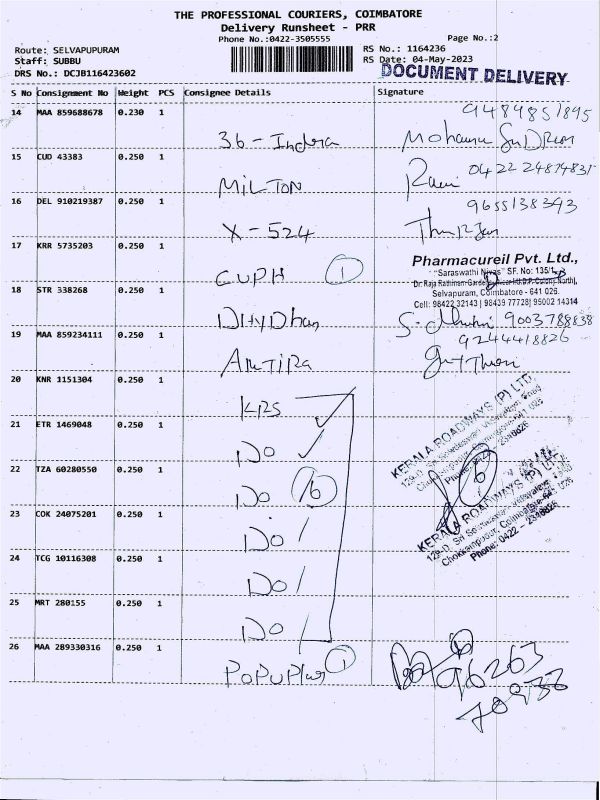 THE PROFESSIONAL COURIERS, COIMBATORE
Delivery Runsheet - PRR
Phone No.:0422-3505555
Page No.:2
Route: SELVAPUPURAM
RS No.: 1164236
Staff: SUBBU
RS Date: 04-May-2023
DRS No.: DCJB116423602
DOCUMENT DELIVERY
S No Consignment No Weight PCS Consignee Details Signature
14 MAA 859688678 0.230 1
36 - Indra
15 CUD 43383 0.250 1
MILTON
Ravi
16 DEL 910219387 0.250 1
9655138343
X - 524
17 KRR 5735203 0.250 1
CUPH 1
Pharmacureil Pvt. Ltd.,
"Saraswathi Nivas" SF. No: 135/1
Selvapuram, Coimbatore - 641 026.
Cell: 98422 32143 | 98439 77728| 95002 14314
18 STR 338268 0.250 1
9003788838
19 MAA 859234111 0.250 1
9244418826
20 KNR 1151304 0.250 1
KRS
21 ETR 1469048 0.250 1
DO
KERALA ROADWAYS (P) LTD.
22 TZA 60280550 0.250 1
DO 6
6
23 COK 24075201 0.250 1
DO
KERALA ROADWAYS (P) LTD.
Phone: 0422 - 2346826
24 TCG 10116308 0.250 1
DO
25 MRT 280155 0.250 1
DO
26 MAA 289330316 0.250 1
POPUPlas 1
96263